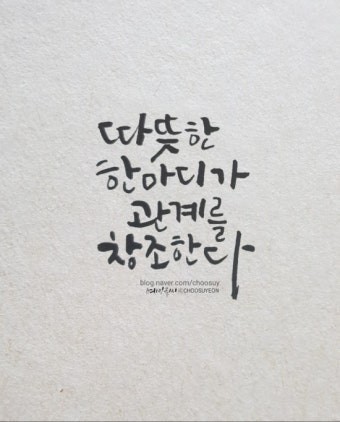 따뜻한
한마디가
관계를
창조한다
blog.naver.com/choosuy
ⓒCHOOSUYEON